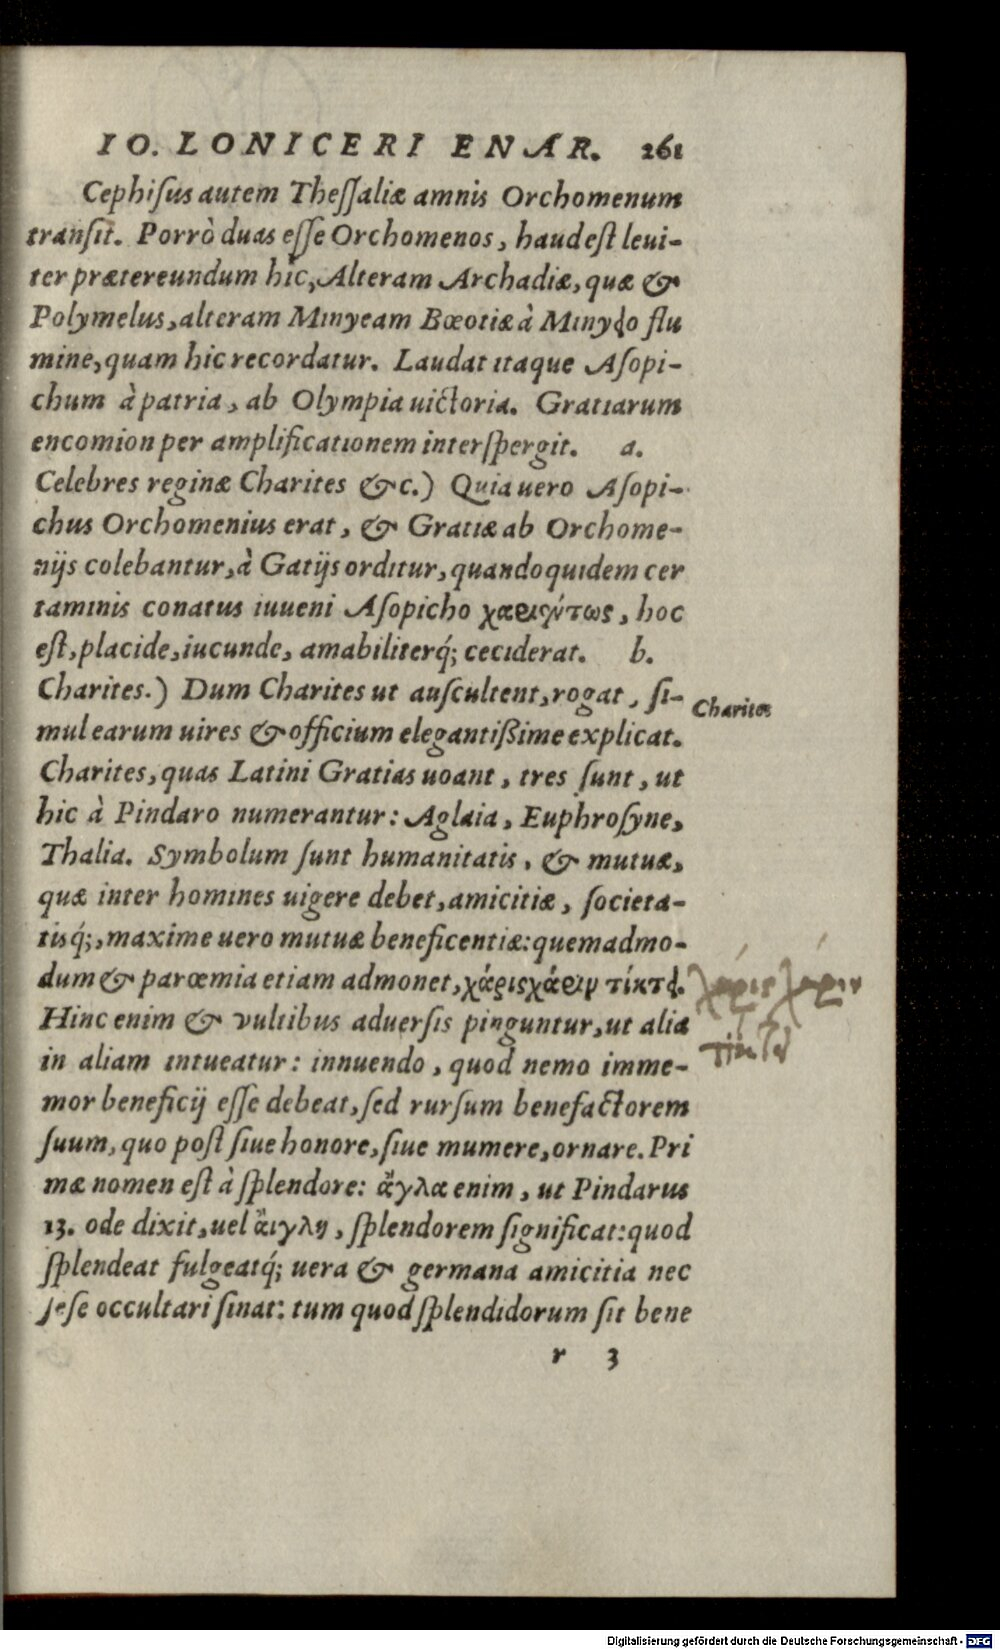 IO. LONICERI ENAR. 261
Cephiſus autem Theſſaliæ amnis Orchomenum
tranſit. Porrò duas eſſe Orchomenos, haud eſt leui-
ter prætereundum hic, Alteram Archadiæ, quæ &
Polymelus, alteram Minyeam Bœotiæ à Minyęo flu
mine, quam hic recordatur. Laudat itaque Aſopi-
chum à patria, ab Olympia uictoria. Gratiarum
encomion per amplificationem interſpergit. a.
Celebres reginæ Charites &c.) Quia uero Aſopi-
chus Orchomenius erat, & Gratiæ ab Orchome-
nijs colebantur, à Gatijs orditur, quandoquidem cer
taminis conatus iuueni Aſopicho χαριέντως, hoc
eſt, placide, iucunde, amabiliterq́; ceciderat. b.
Charites.) Dum Charites ut auſcultent, rogat, ſi-
mul earum uires & officium elegantißime explicat.
Charites
Charites, quas Latini Gratias uoant, tres ſunt, ut
hic à Pindaro numerantur: Aglaia, Euphroſyne,
Thalia. Symbolum ſunt humanitatis, & mutuæ,
quæ inter homines uigere debet, amicitiæ, ſocieta-
tisq́;, maxime uero mutuæ beneficentiæ: quemadmo-
dum & parœmia etiam admonet, χάρις χάριν τίκτει.
χάρις χάριν
τίκτει
Hinc enim & vultibus aduerſis pinguntur, ut alia
in aliam intueatur: innuendo, quod nemo imme-
mor beneficij eſſe debeat, ſed rurſum benefactorem
ſuum, quo poſt ſiue honore, ſiue mumere, ornare. Pri
mæ nomen eſt à ſplendore: ἄγλα enim, ut Pindarus
13. ode dixit, uel ἄιγλη, ſplendorem ſignificat: quod
ſplendeat fulgeatq́; uera & germana amicitia nec
ſeſe occultari ſinat: tum quod ſplendidorum ſit bene
r 3
Digitalisierung gefördert durch die Deutsche Forschungsgemeinschaft - DFG